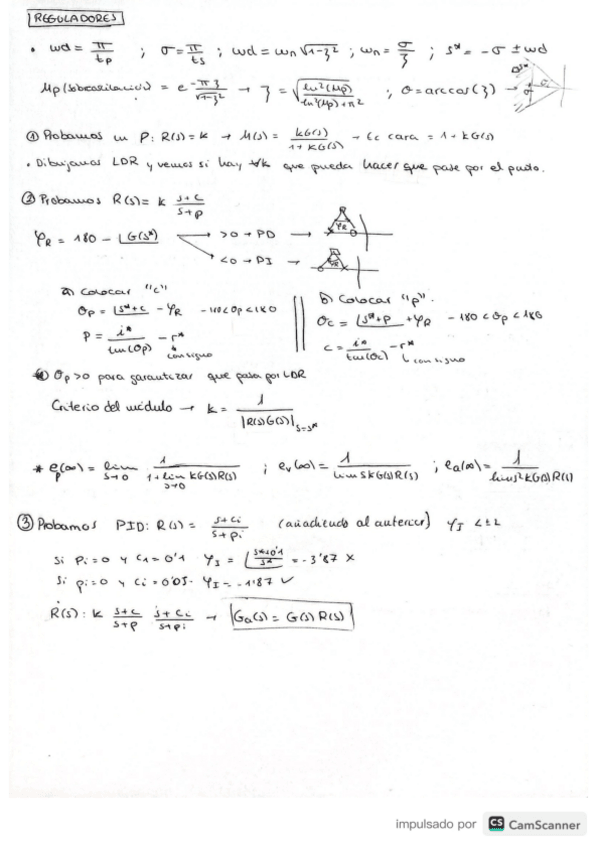 REGULADORES
• wd = π/tp ; σ = π/ts ; wd = wn √1-ʒ² ; wn = σ/ʒ ; s* = -σ ± wd
Mp (sobreoscilación) = e^(-πʒ/√1-ʒ²) → ʒ = √(ln²(Mp)/(ln²(Mp)+π²)) ; θ = arccos(ʒ) →
① Probamos un P: R(s) = k → M(s) = kG(s)/(1+kG(s)) → Ec cara = 1 + kG(s)
• Dibujamos LDR y vemos si hay k que pueda hacer que pase por el punto.
② Probamos R(s) = k (s+c)/(s+p)
φR = 180 - ∟G(s*) → >0 → PD → φR
<0 → PI → φR
a) Colocar "c"
θp = ∟s*+c - φR -180<θp<180
p = i*/tan(θp) - r* ↳ con signo
b) Colocar "p".
θc = ∟s*+p + φR -180<θp<180
c = i*/tan(θc) - r* ↳ con signo
θp>0 para garantizar que pasa por LDR
Criterio del módulo → k = 1/|R(s)G(s)| s=s*
* ep(∞) = lim s→0 1/(1+lim s→0 KG(s)R(s)) ; ev(∞) = 1/(lim sKG(s)R(s)) ; ea(∞) = 1/(lim s²KG(s)R(s))
③ Probamos PID: R(s) = (s+ci)/(s+pi) (añadiendo al anterior) φI <±2
Si pi=0 y ci=0'1 φI = ∟(s*+0'1)/s* = -3'87 ×
Si pi=0 y ci=0'05. φI = -1'87 ✓
R(s): k (s+c)/(s+p) (s+ci)/(s+pi) → Ga(s) = G(s) R(s)
impulsado por CS CamScanner